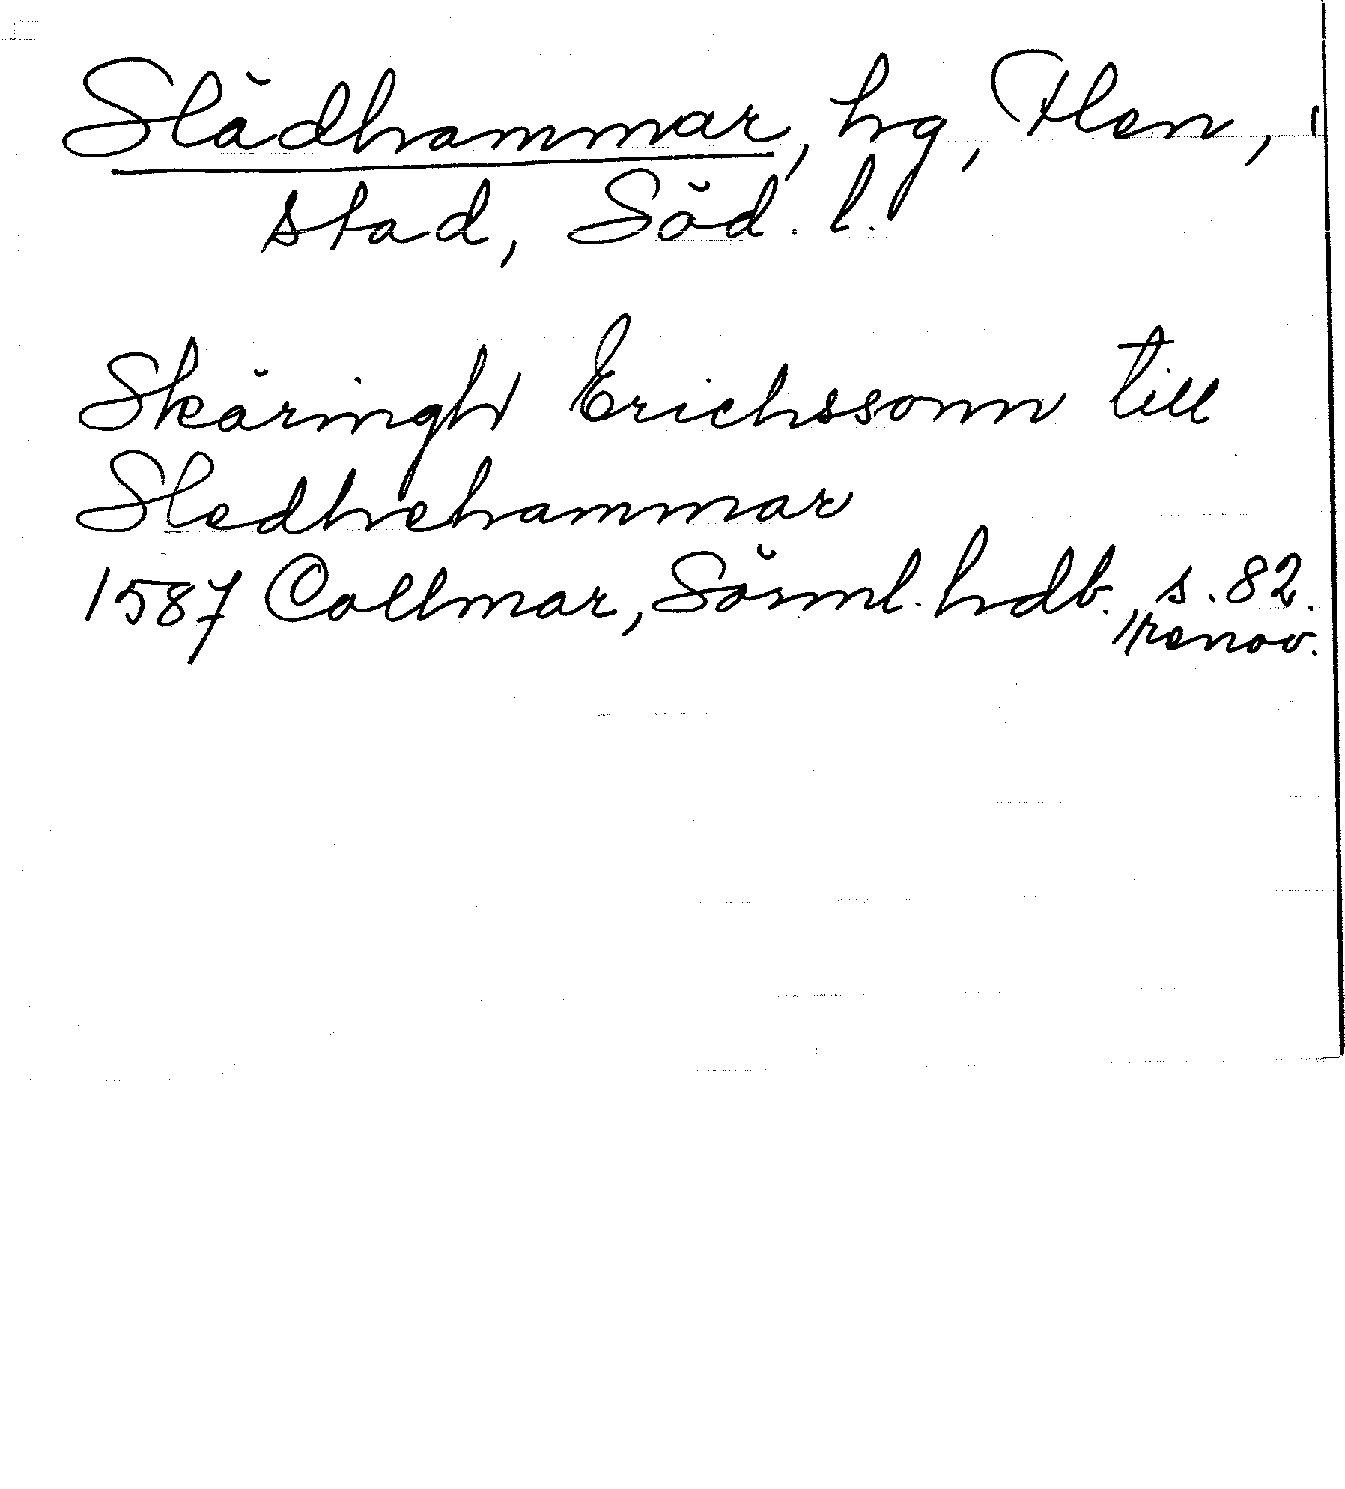 Slädhammar, hg, Flen,
stad, Söd. l.
Skäringh Erichssonn till
Sledhehammar
1587 Collmar, Sörml. hdb. s. 82.
/renov.